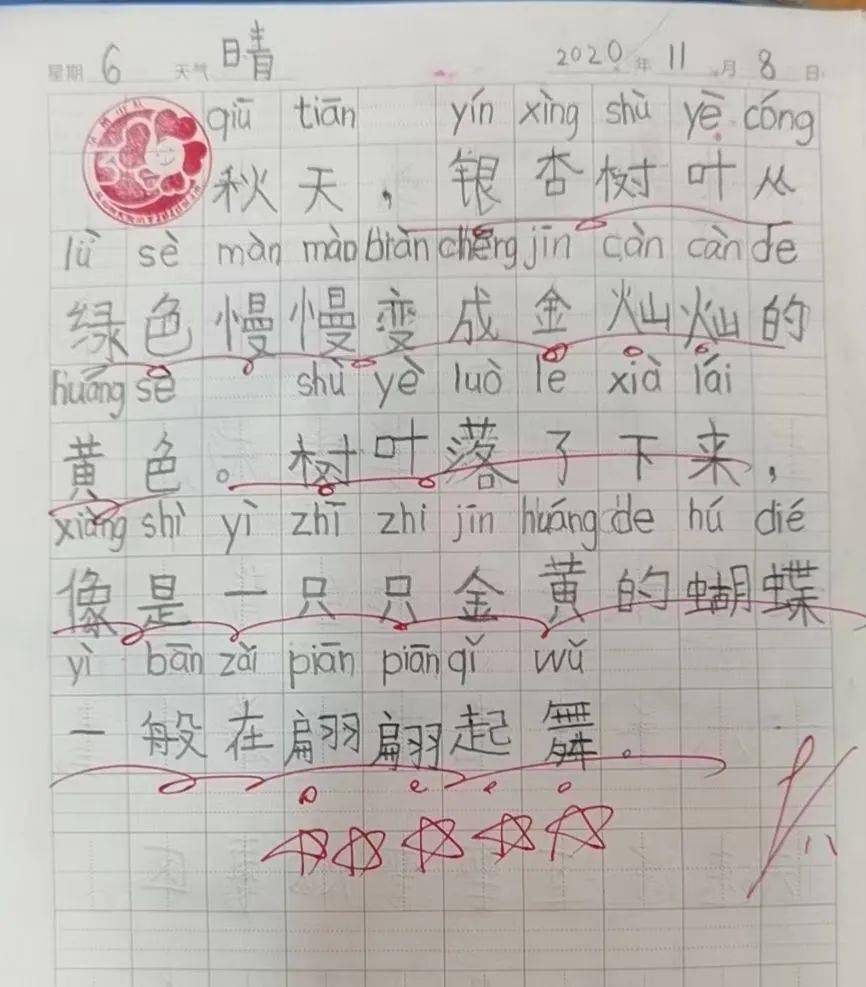 星期 6 天气 晴 2020 年 11 月 8 日
qiū tiān yín xìng shù yè cóng
秋天，银杏树叶从
lǜ sè màn màn biàn chéng jīn càn càn de
绿色慢慢变成金灿灿的
huáng sè shù yè luò le xià lái
黄色。树叶落了下来，
xiàng shì yì zhī zhi jīn huáng de hú dié
像是一只只金黄的蝴蝶
yì bān zǎi piān piān qǐ wǔ
一般在翩翩起舞。